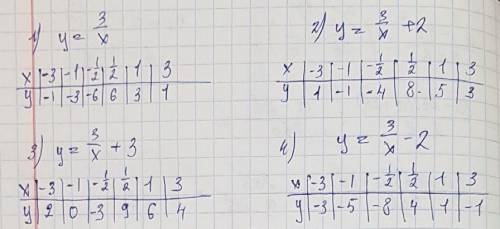 1) y = 3/x
x | -3 | -1 | -1/2 | 1/2 | 1 | 3
y | -1 | -3 | -6 | 6 | 3 | 1
2) y = 3/x + 2
x | -3 | -1 | -1/2 | 1/2 | 1 | 3
y | 1 | -1 | -4 | 8 | 5 | 3
3) y = 3/x + 3
x | -3 | -1 | -1/2 | 1/2 | 1 | 3
y | 2 | 0 | -3 | 9 | 6 | 4
4) y = 3/x - 2
x | -3 | -1 | -1/2 | 1/2 | 1 | 3
y | -3 | -5 | -8 | 4 | 1 | -1